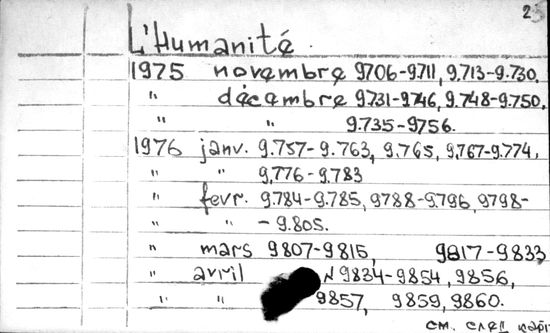 23
L'Humanité
1975 novembre 9706-9711, 9.713-9.730.
" décembre 9731-9746, 9.748-9.750,
" " 9.735-9756.
1976 janv. 9.757-9.763, 9.765, 9,767-9.774,
" " 9,776-9.783
" fevr. 9.784-9.785, 9788-9.796, 9798-
" " -9.805.
" mars 9807-9815, 9817-9833
" avril N 9834-9854, 9856,
" " 9857, 9859, 9860.
см. след